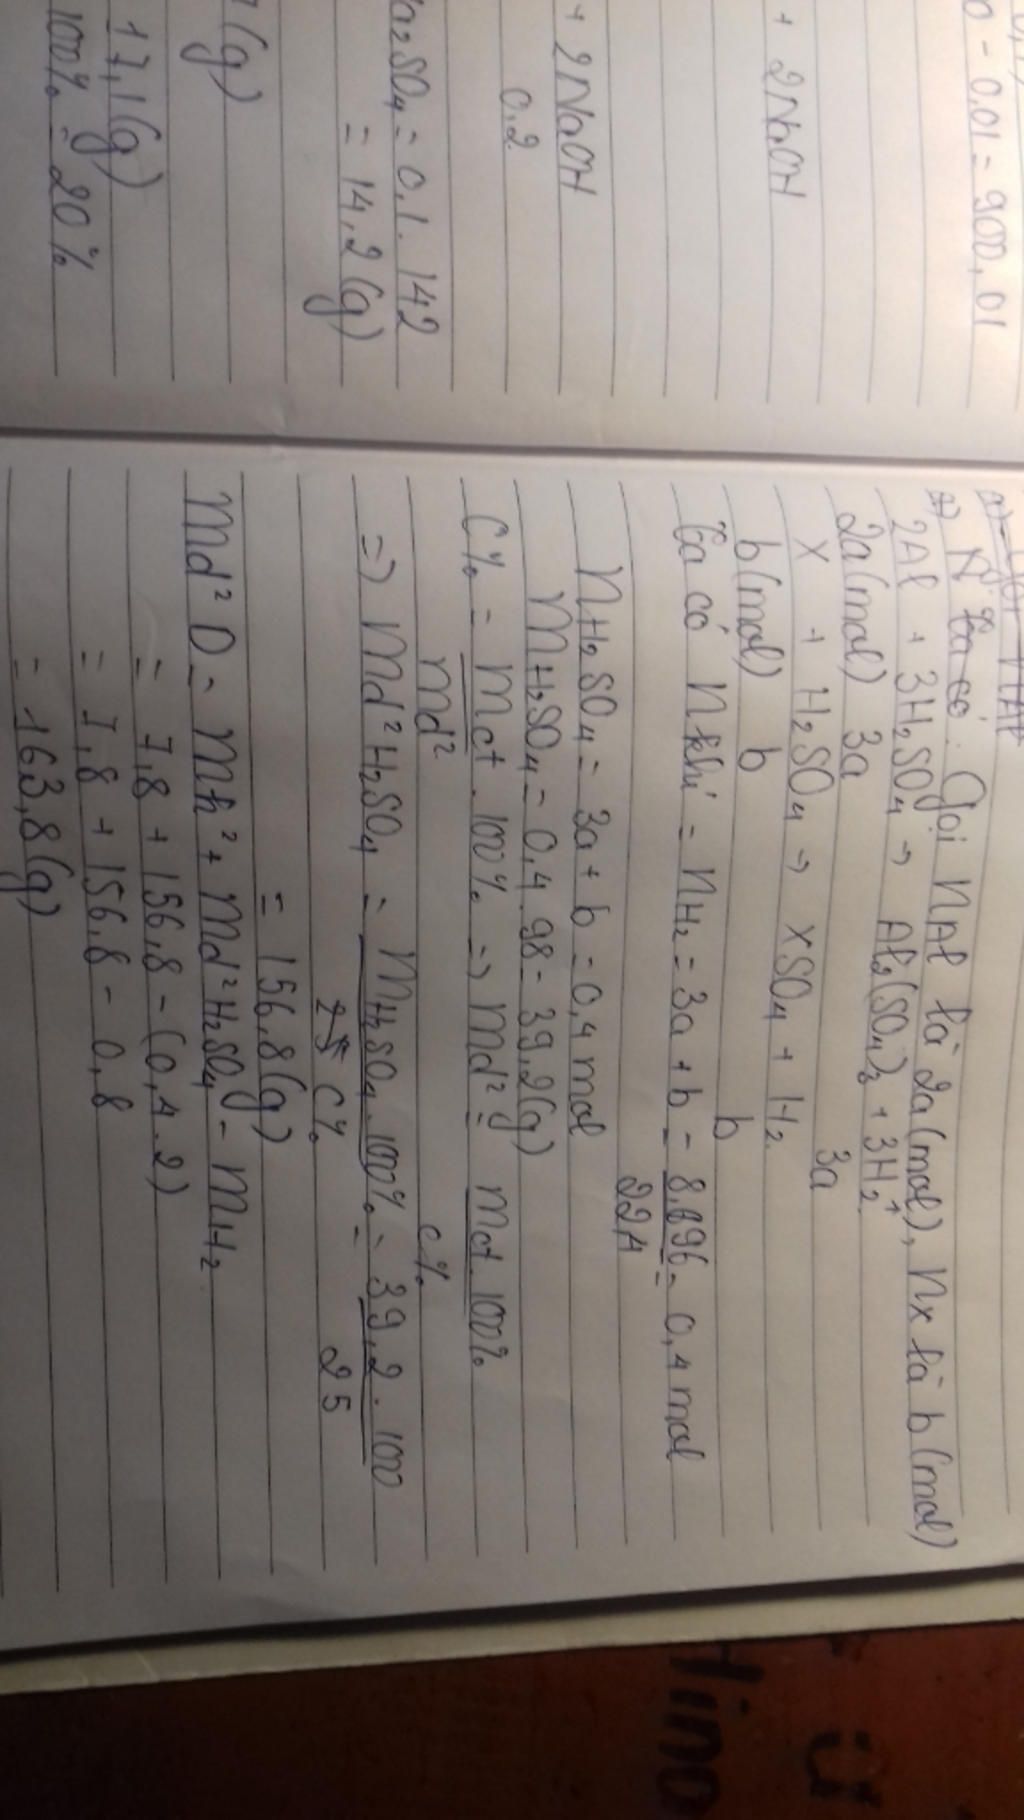 0 - 0,01 = 900,01
+ 2NaOH
+ 2NaOH
0,2
a₂SO₄ = 0,1 . 142
= 14,2 (g)
(g)
17,1 (g)
100% = 20%
a) Ta có: Gọi nAl là 2a (mol), nx là b (mol)
2Al + 3H₂SO₄ → Al₂(SO₄)₃ + 3H₂↑
2a (mol) 3a 3a
X + H₂SO₄ → XSO₄ + H₂
b (mol) b b
Ta có n khí = nH₂ = 3a + b = 8,896 = 0,4 mol
22,4
nH₂SO₄ = 3a + b = 0,4 mol
mH₂SO₄ = 0,4 . 98 = 39,2 (g)
C% = mct . 100% => md² = mct . 100%
md² C%
=> md² H₂SO₄ = mH₂SO₄ . 100% = 39,2 . 100
C% 25
= 156,8 (g)
md² D = mh² + md² H₂SO₄ - mH₂
= 7,8 + 156,8 - (0,4 . 2)
= 7,8 + 156,8 - 0,8
= 163,8 (g)